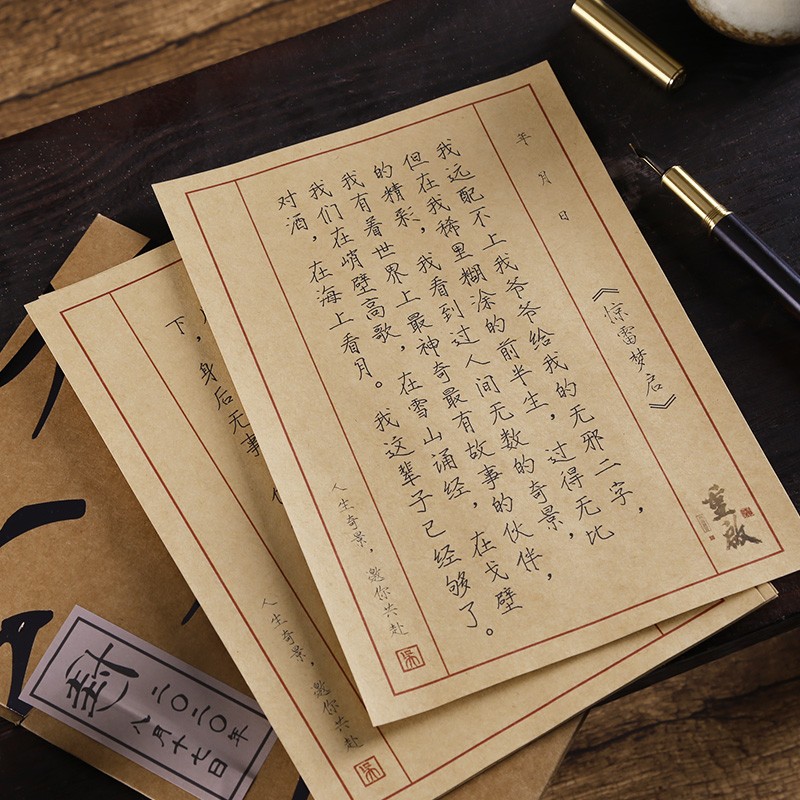 年 月 日
《惊雷梦启》
重啟
我远配不上我爷爷给我的无邪二字，
但在我稀里糊涂的前半生，过得无比
的精彩，我看到过人间无数的奇景，
我有着世界上最神奇最有故事的伙伴，
我们在峭壁高歌，在雪山诵经，在戈壁
对酒，在海上看月。我这辈子已经够了。
人生奇景，邀你共赴
吴
下，身后无事
人生奇景，邀你共赴
吴
封
二〇二〇年
八月十七日